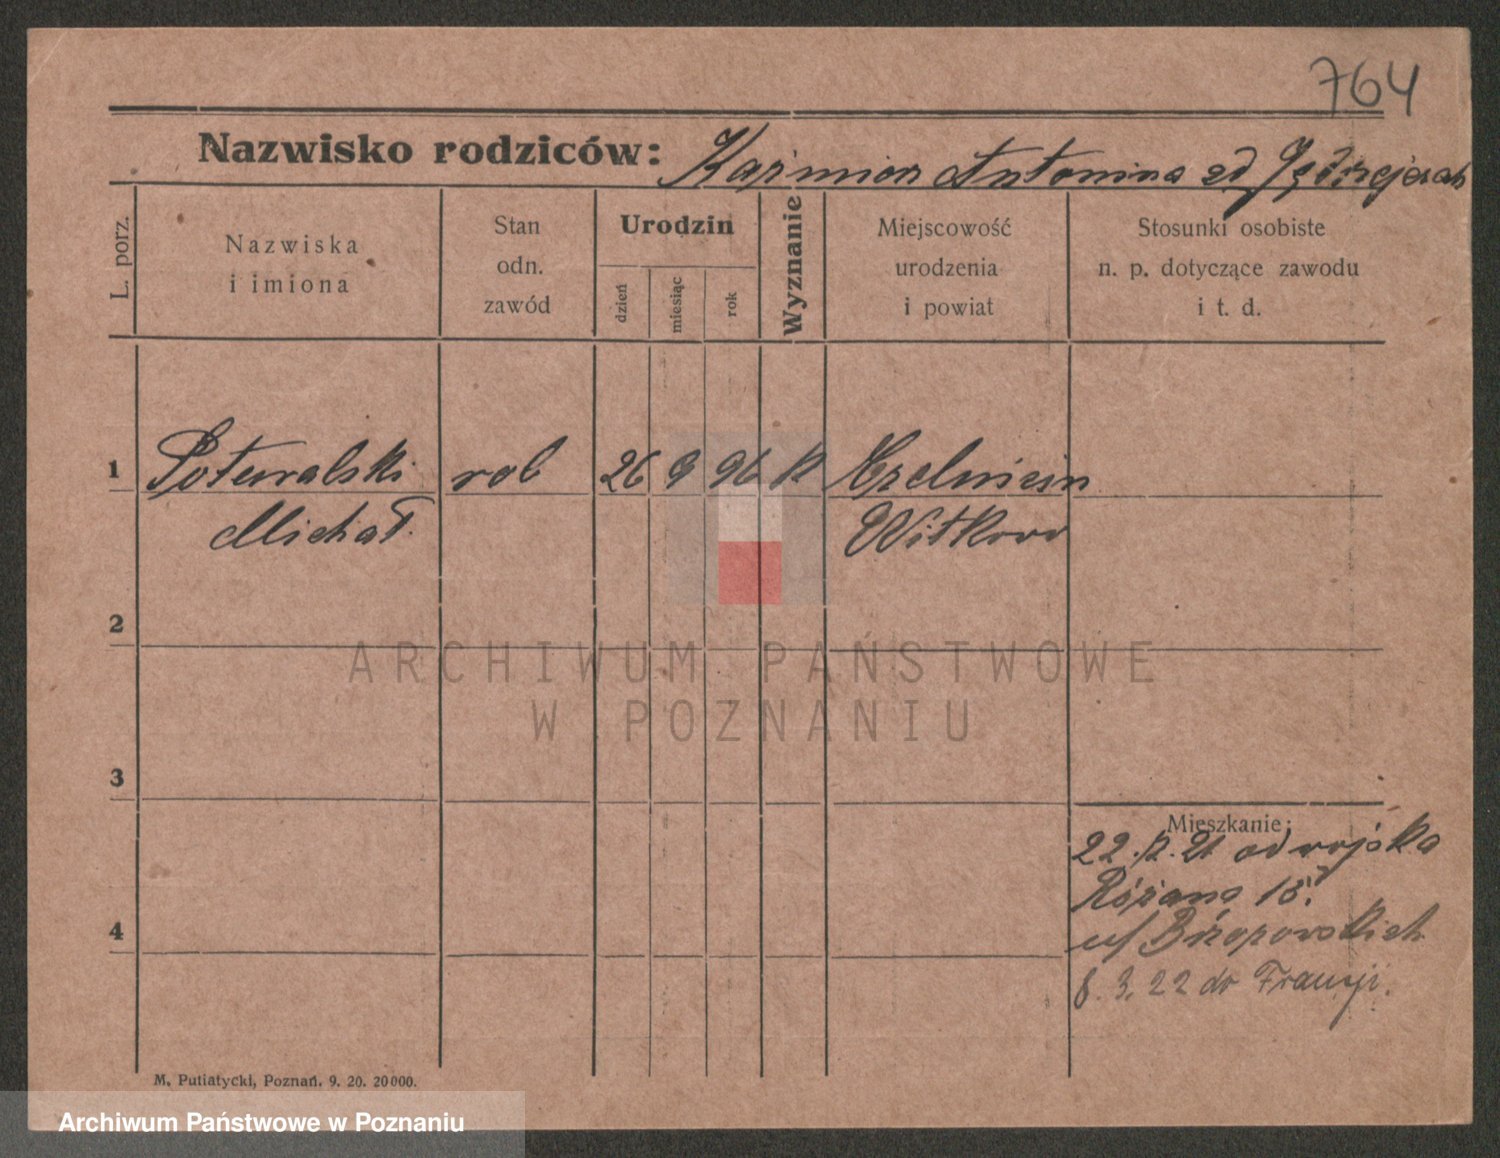 764
Nazwisko rodziców: Kaźmierz Antonina zd Jędrzejczak
L. porz.
Nazwiska
i imiona
Stan
odn.
zawód
Urodzin
dzień
miesiąc
rok
Wyznanie
Miejscowość
urodzenia
i powiat
Stosunki osobiste
n. p. dotyczące zawodu
i t. d.
1 rob 26 9 96 k
Michał Witkowo
2
ARCHIWUM PAŃSTWOWE
W POZNANIU
3
Mieszkanie:
od wojska
Różana 15.
4
8. 3. 22 do Francji.
M. Putiatycki, Poznań. 9. 20. 20000.
Archiwum Państwowe w Poznaniu